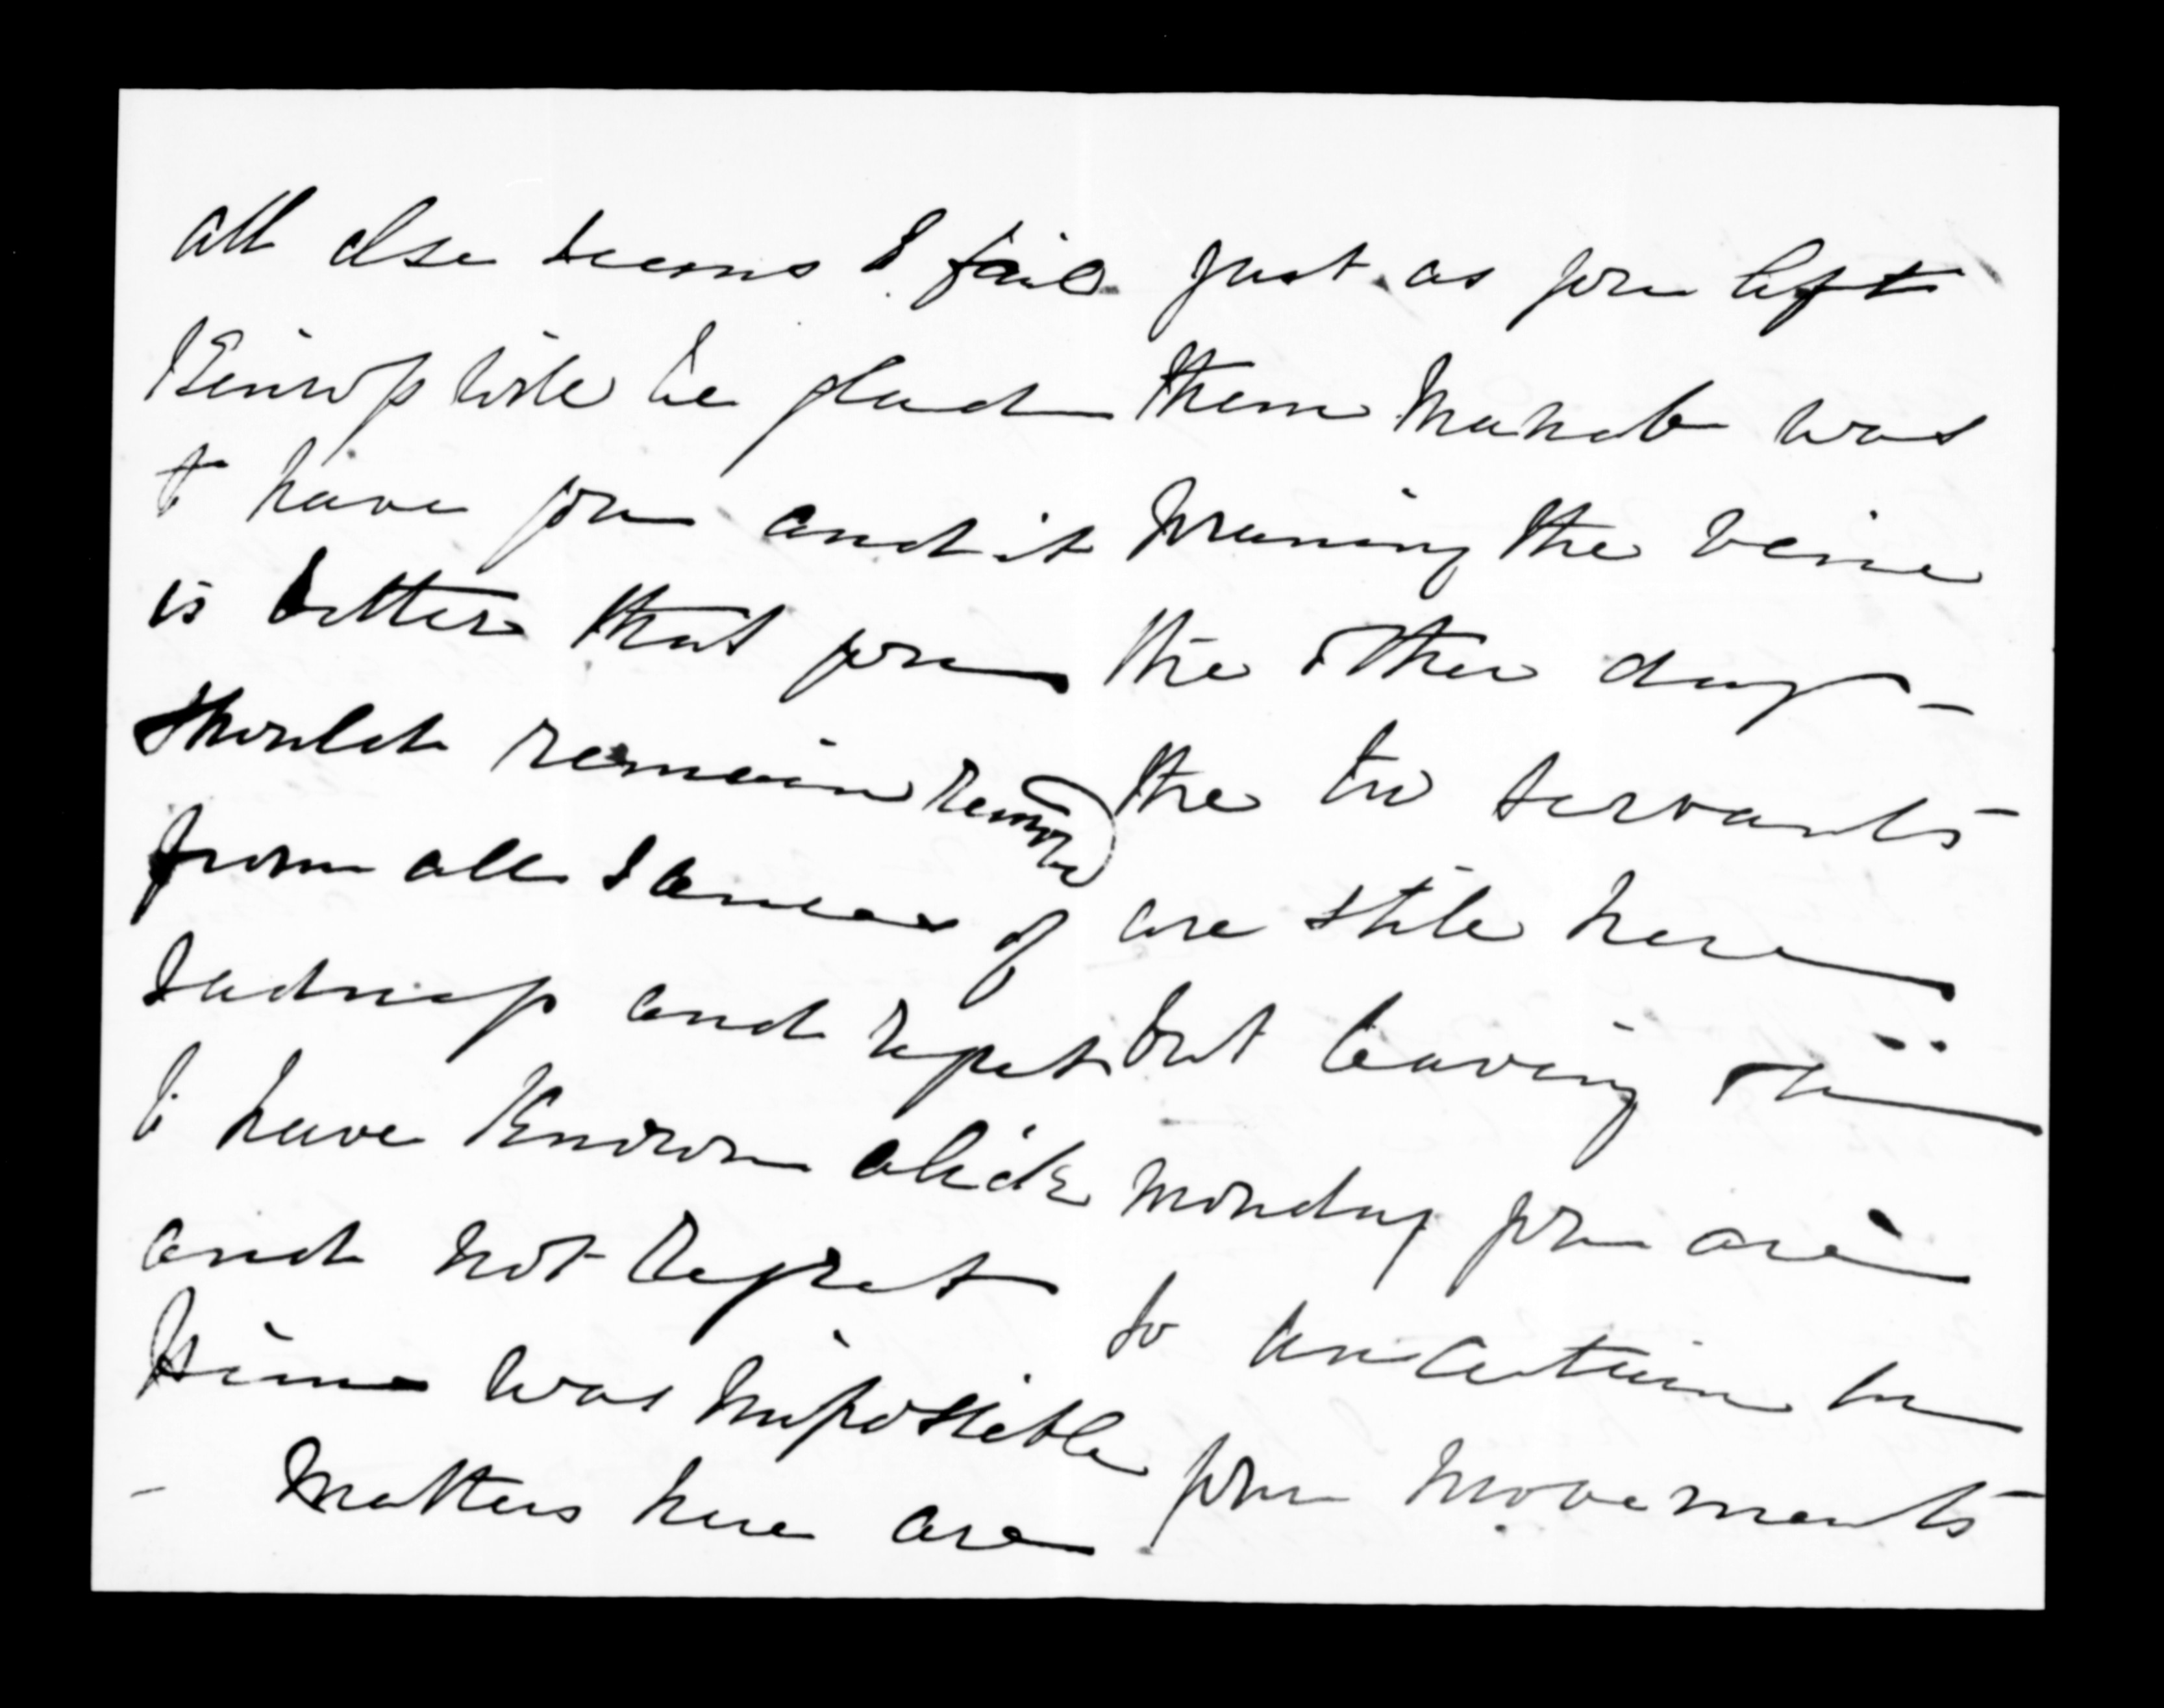 all else seems to fail
Kinross will be glad
to have you and it
is better that you
should remain remote
from all scenes of
sadness and regret
to have known Alick
and not regret
him was impossible
- Matters here are
just as you left
them was
pruning the vine
the other day -
the two servants
are still here
but leaving
Monday you are
so uncertain in
your movements